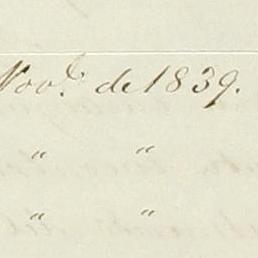 Nov.^e de 1839.
" "
" "